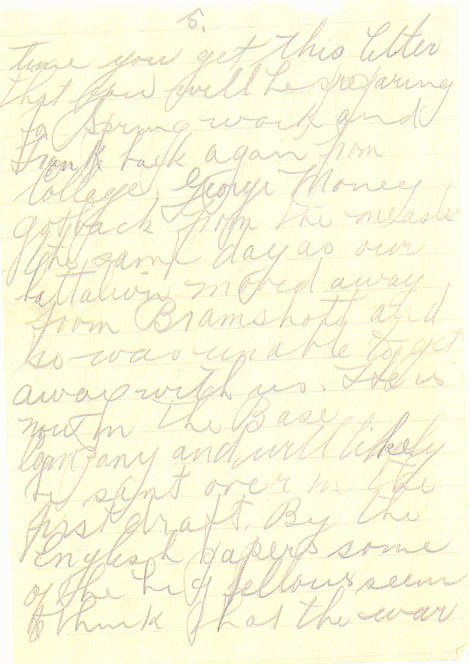 5.
time you get this letter
that you will be preparing
for Spring work and
Frank back again from
College. George Money
got back from the measles
the same day as our
battalion moved away
from Bramshott and
so was unable to get
away with us. He is
now in the Base
Company and will likely
be sent over in the
first draft. By the
English papers some
of the big fellows seem
to think that the war